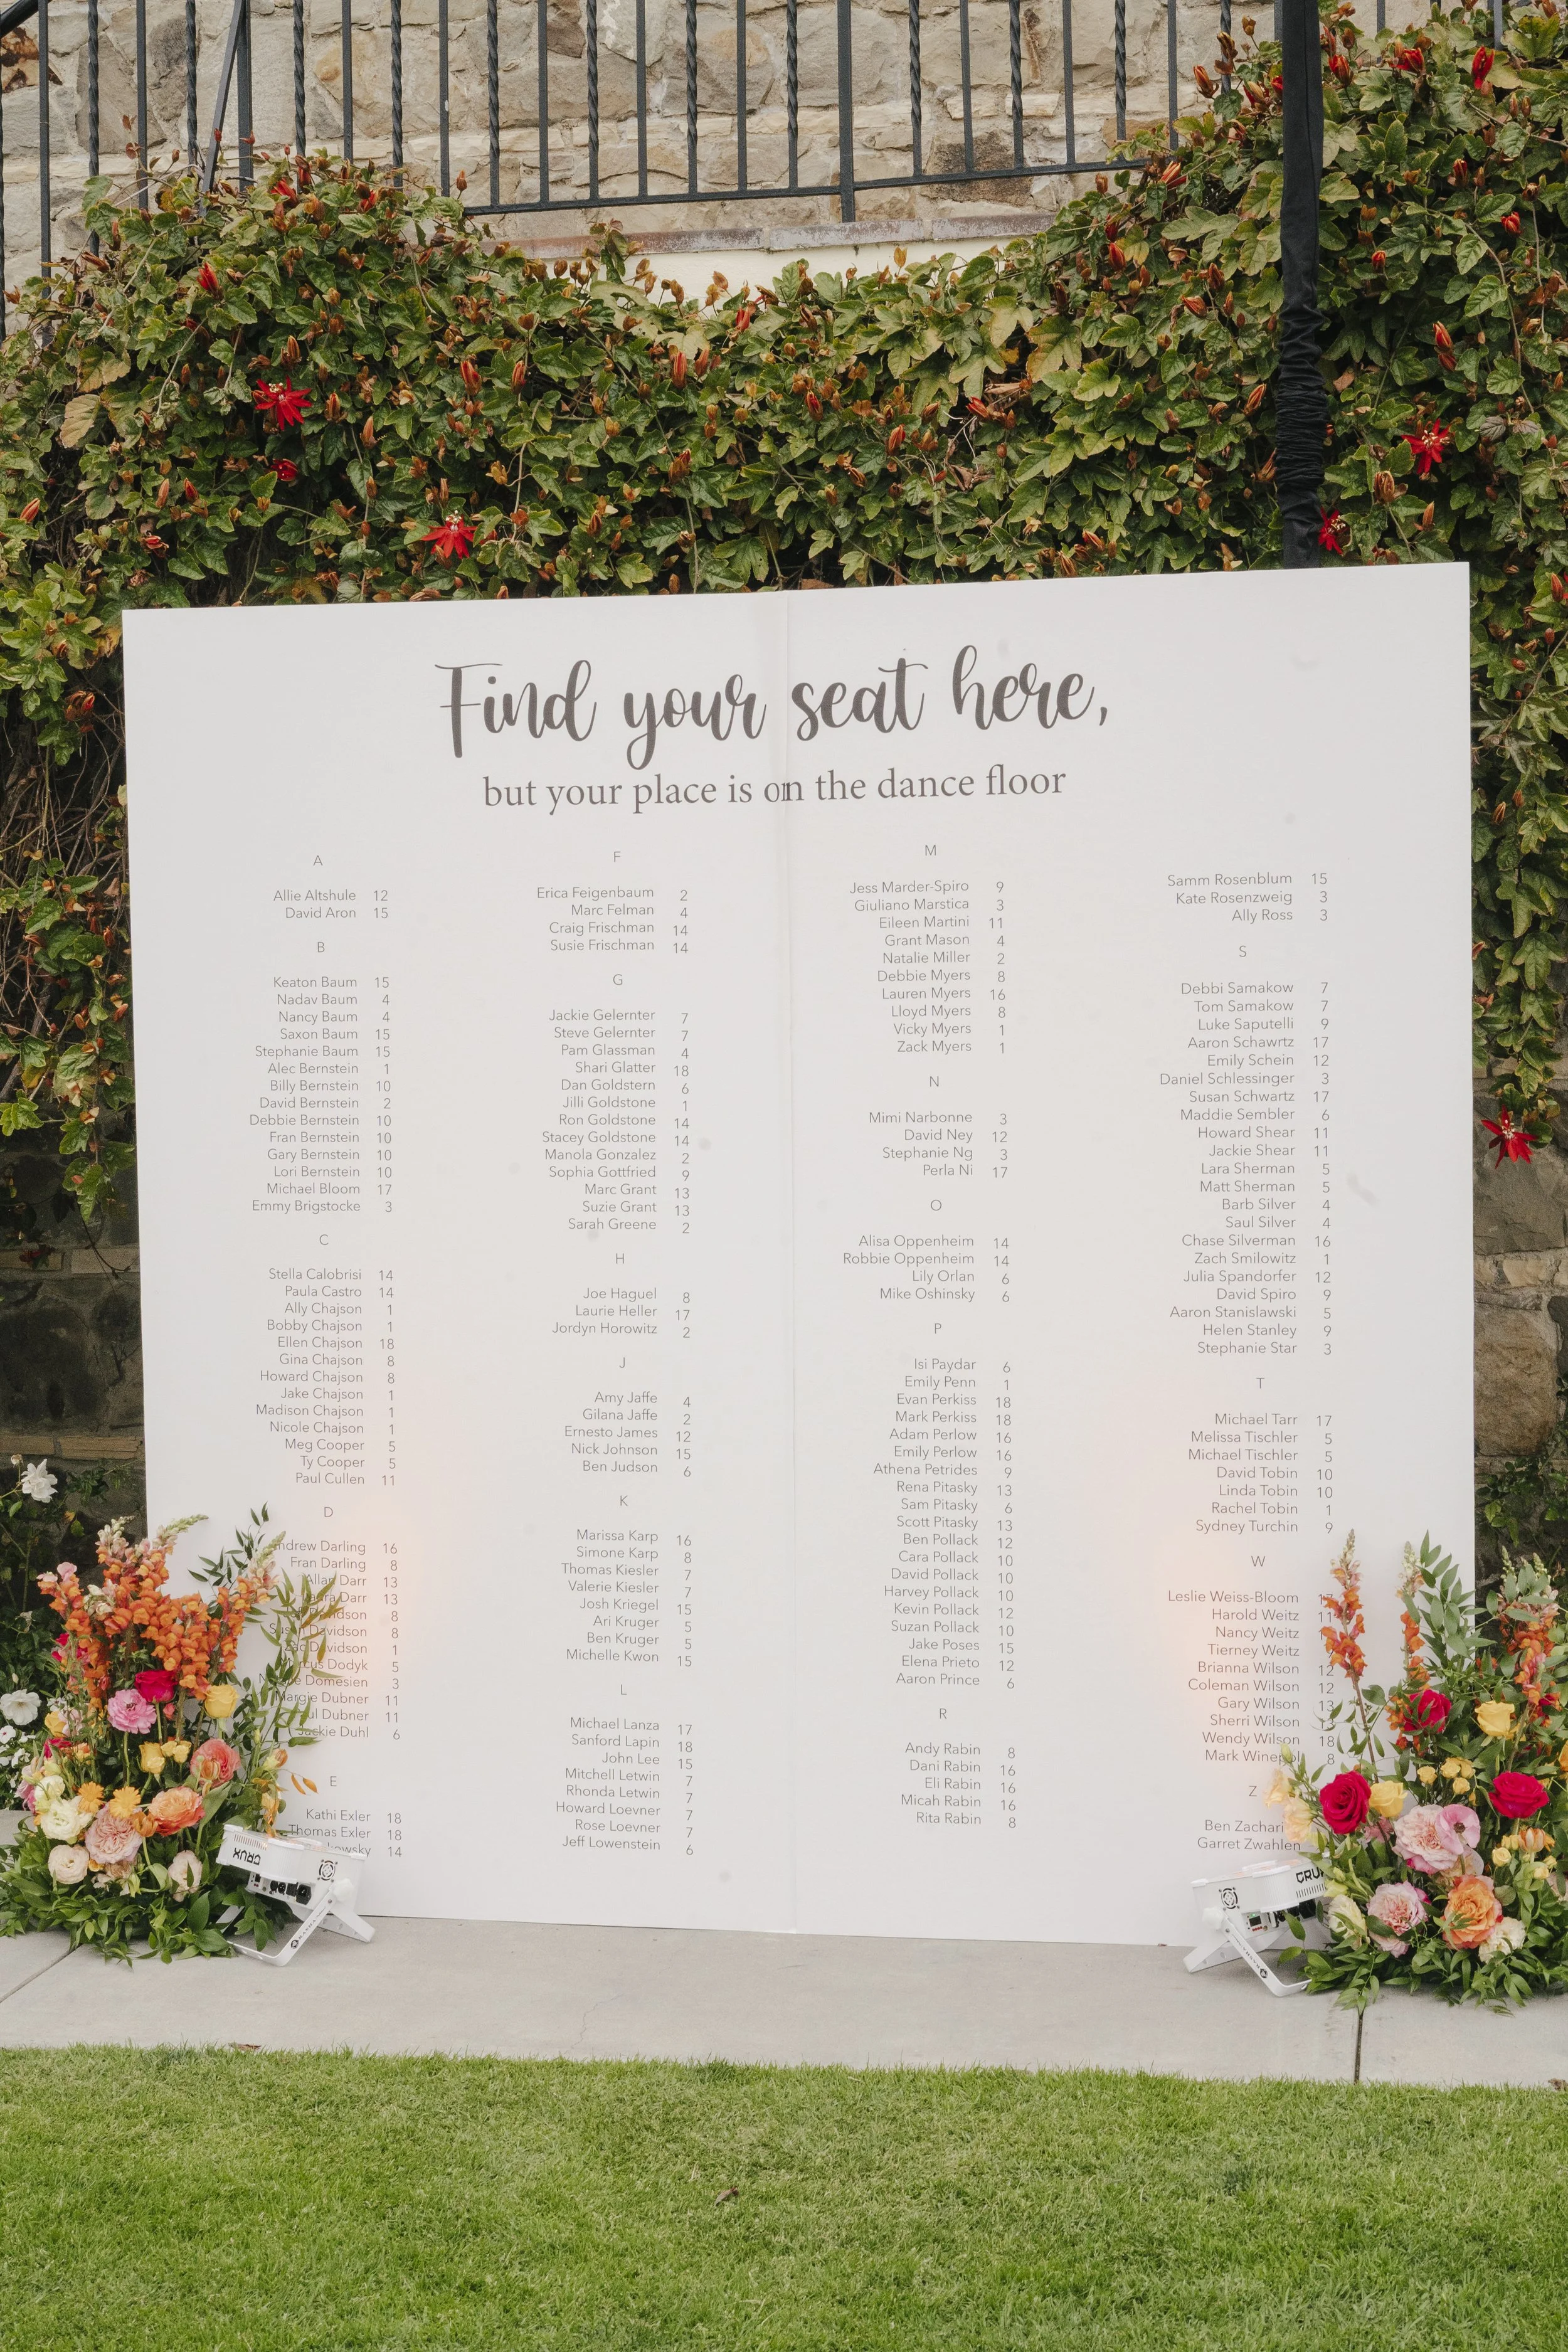 Find your seat here,
but your place is on the dance floor
A
Allie Altshule 12
David Aron 15
B
Keaton Baum 15
Nadav Baum 4
Nancy Baum 4
Saxon Baum 15
Stephanie Baum 15
Alec Bernstein 1
Billy Bernstein 10
David Bernstein 2
Debbie Bernstein 10
Fran Bernstein 10
Gary Bernstein 10
Lori Bernstein 10
Michael Bloom 17
Emmy Brigstocke 3
C
Stella Calobrisi 14
Paula Castro 14
Ally Chajson 1
Bobby Chajson 1
Ellen Chajson 18
Gina Chajson 8
Howard Chajson 8
Jake Chajson 1
Madison Chajson 1
Nicole Chajson 1
Meg Cooper 5
Ty Cooper 5
Paul Cullen 11
D
Darling 16
Fran Darling 8
Allan Darr 13
Darr 13
8
Davidson 8
Davidson 1
Dodyk 5
Domesien 3
Margie Dubner 11
Dubner 11
Jackie Duhl 6
E
Kathi Exler 18
Thomas Exler 18
14
F
Erica Feigenbaum 2
Marc Felman 4
Craig Frischman 14
Susie Frischman 14
G
Jackie Gelernter 7
Steve Gelernter 7
Pam Glassman 4
Shari Glatter 18
Dan Goldstern 6
Jilli Goldstone 1
Ron Goldstone 14
Stacey Goldstone 14
Manola Gonzalez 2
Sophia Gottfried 9
Marc Grant 13
Suzie Grant 13
Sarah Greene 2
H
Joe Haguel 8
Laurie Heller 17
Jordyn Horowitz 2
J
Amy Jaffe 4
Gilana Jaffe 2
Ernesto James 12
Nick Johnson 15
Ben Judson 6
K
Marissa Karp 16
Simone Karp 8
Thomas Kiesler 7
Valerie Kiesler 7
Josh Kriegel 15
Ari Kruger 5
Ben Kruger 5
Michelle Kwon 15
L
Michael Lanza 17
Sanford Lapin 18
John Lee 15
Mitchell Letwin 7
Rhonda Letwin 7
Howard Loevner 7
Rose Loevner 7
Jeff Lowenstein 6
M
Jess Marder-Spiro 9
Giuliano Marstica 3
Eileen Martini 11
Grant Mason 4
Natalie Miller 2
Debbie Myers 8
Lauren Myers 16
Lloyd Myers 8
Vicky Myers 1
Zack Myers 1
N
Mimi Narbonne 3
David Ney 12
Stephanie Ng 3
Perla Ni 17
O
Alisa Oppenheim 14
Robbie Oppenheim 14
Lily Orlan 6
Mike Oshinsky 6
P
Isi Paydar 6
Emily Penn 1
Evan Perkiss 18
Mark Perkiss 18
Adam Perlow 16
Emily Perlow 16
Athena Petrides 9
Rena Pitasky 13
Sam Pitasky 6
Scott Pitasky 13
Ben Pollack 12
Cara Pollack 10
David Pollack 10
Harvey Pollack 10
Kevin Pollack 12
Suzan Pollack 10
Jake Poses 15
Elena Prieto 12
Aaron Prince 6
R
Andy Rabin 8
Dani Rabin 16
Eli Rabin 16
Micah Rabin 16
Rita Rabin 8
Samm Rosenblum 15
Kate Rosenzweig 3
Ally Ross 3
S
Debbi Samakow 7
Tom Samakow 7
Luke Saputelli 9
Aaron Schawrtz 17
Emily Schein 12
Daniel Schlessinger 3
Susan Schwartz 17
Maddie Sembler 6
Howard Shear 11
Jackie Shear 11
Lara Sherman 5
Matt Sherman 5
Barb Silver 4
Saul Silver 4
Chase Silverman 16
Zach Smilowitz 1
Julia Spandorfer 12
David Spiro 9
Aaron Stanislawski 5
Helen Stanley 9
Stephanie Star 3
T
Michael Tarr 17
Melissa Tischler 5
Michael Tischler 5
David Tobin 10
Linda Tobin 10
Rachel Tobin 1
Sydney Turchin 9
W
Leslie Weiss-Bloom
Harold Weitz 11
Nancy Weitz
Tierney Weitz
Brianna Wilson 12
Coleman Wilson 12
Gary Wilson 13
Sherri Wilson 13
Wendy Wilson 18
Mark 8
Z
Ben
Garret Zwahlen
CRUX